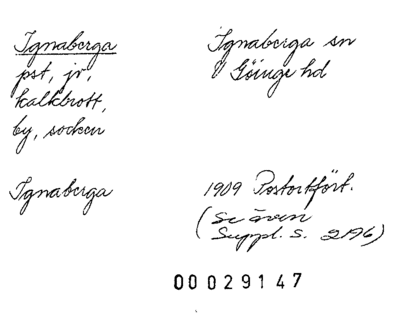 Ignaberga
pst, jv,
kalkbrott,
by, socken
Ignaberga sn
V Göinge hd
Ignaberga
1909 Postortfört.
(Se även
Suppl. s. 2196)
00029147